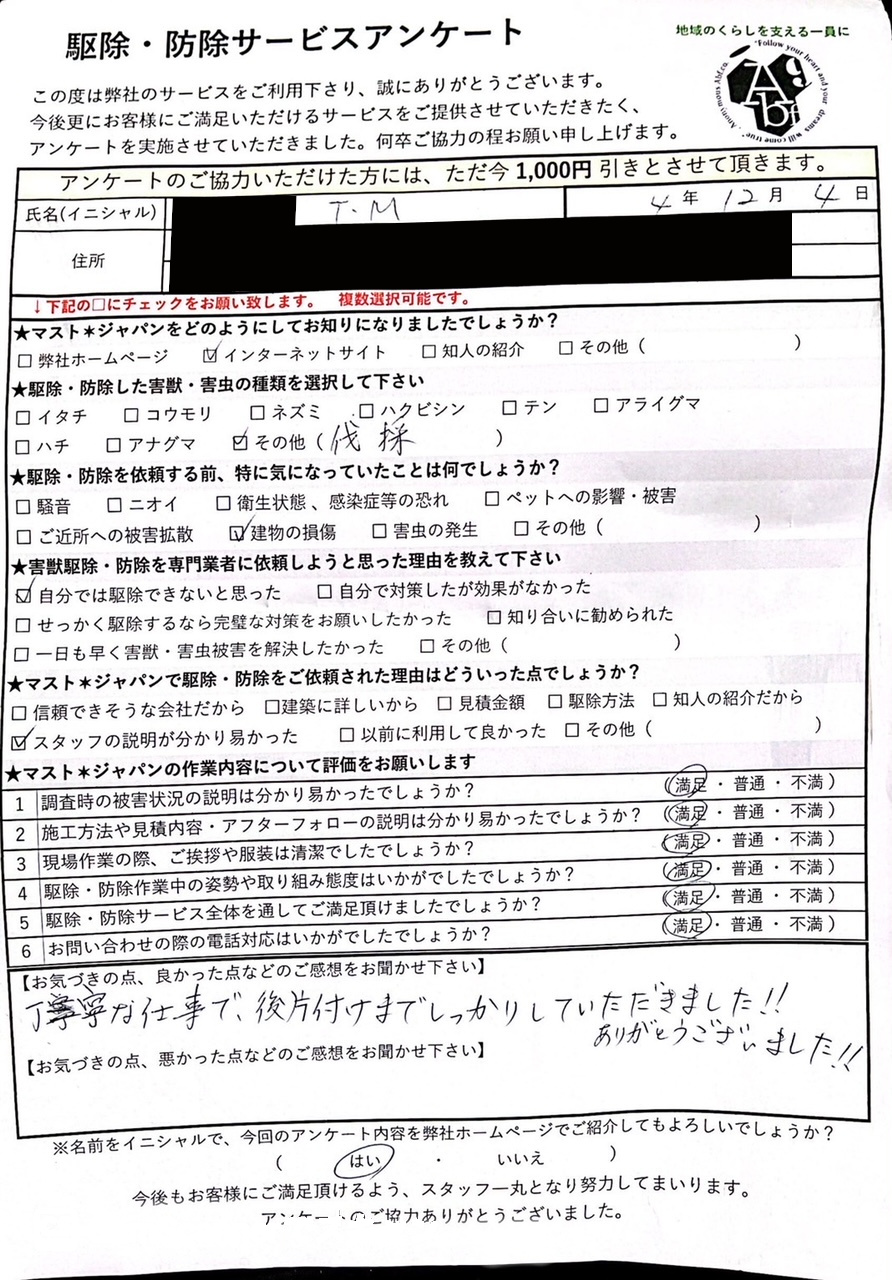 駆除・防除サービスアンケート
地域のくらしを支える一員に
"Follow your heart and your dreams will come true", Anonymous Abf.co.
A9bf
この度は弊社のサービスをご利用下さり、誠にありがとうございます。
今後更にお客様にご満足いただけるサービスをご提供させていただきたく、
アンケートを実施させていただきました。何卒ご協力の程お願い申し上げます。
アンケートのご協力いただけた方には、ただ今 1,000円 引きとさせて頂きます。
氏名(イニシャル) T.M 4 年 12 月 4 日
住所
↓下記の□にチェックをお願い致します。 複数選択可能です。
★マスト＊ジャパンをどのようにしてお知りになりましたでしょうか？
□ 弊社ホームページ ☑ インターネットサイト □ 知人の紹介 □ その他（ ）
★駆除・防除した害獣・害虫の種類を選択して下さい
□ イタチ □ コウモリ □ ネズミ □ ハクビシン □ テン □ アライグマ
□ ハチ □ アナグマ ☑ その他（伐採 ）
★駆除・防除を依頼する前、特に気になっていたことは何でしょうか？
□ 騒音 □ ニオイ □ 衛生状態 、感染症等の恐れ □ ペットへの影響・被害
□ ご近所への被害拡散 ☑ 建物の損傷 □ 害虫の発生 □ その他（ ）
★害獣駆除・防除を専門業者に依頼しようと思った理由を教えて下さい
☑ 自分では駆除できないと思った □ 自分で対策したが効果がなかった
□ せっかく駆除するなら完璧な対策をお願いしたかった □ 知り合いに勧められた
□ 一日も早く害獣・害虫被害を解決したかった □ その他（ ）
★マスト＊ジャパンで駆除・防除をご依頼された理由はどういった点でしょうか？
□ 信頼できそうな会社だから □建築に詳しいから □ 見積金額 □ 駆除方法 □ 知人の紹介だから
☑ スタッフの説明が分かり易かった □ 以前に利用して良かった □ その他（ ）
★マスト＊ジャパンの作業内容について評価をお願いします
1 調査時の被害状況の説明は分かり易かったでしょうか？ （満足・ 普通 ・ 不満 ）
2 施工方法や見積内容・アフターフォローの説明は分かり易かったでしょうか？ （満足・ 普通 ・ 不満 ）
3 現場作業の際、ご挨拶や服装は清潔でしたでしょうか？ （満足・ 普通 ・ 不満 ）
4 駆除・防除作業中の姿勢や取り組み態度はいかがでしたでしょうか？ （満足・ 普通 ・ 不満 ）
5 駆除・防除サービス全体を通してご満足頂けましたでしょうか？ （満足・ 普通 ・ 不満 ）
6 お問い合わせの際の電話対応はいかがでしたでしょうか？ （満足・ 普通 ・ 不満 ）
【お気づきの点、良かった点などのご感想をお聞かせ下さい】
丁寧な仕事で、後片付けまでしっかりしていただきました!!
ありがとうございました!!
【お気づきの点、悪かった点などのご感想をお聞かせ下さい】
※名前をイニシャルで、今回のアンケート内容を弊社ホームページでご紹介してもよろしいでしょうか？
（ はい ・ いいえ ）
今後もお客様にご満足頂けるよう、スタッフ一丸となり努力してまいります。
アンケートのご協力ありがとうございました。